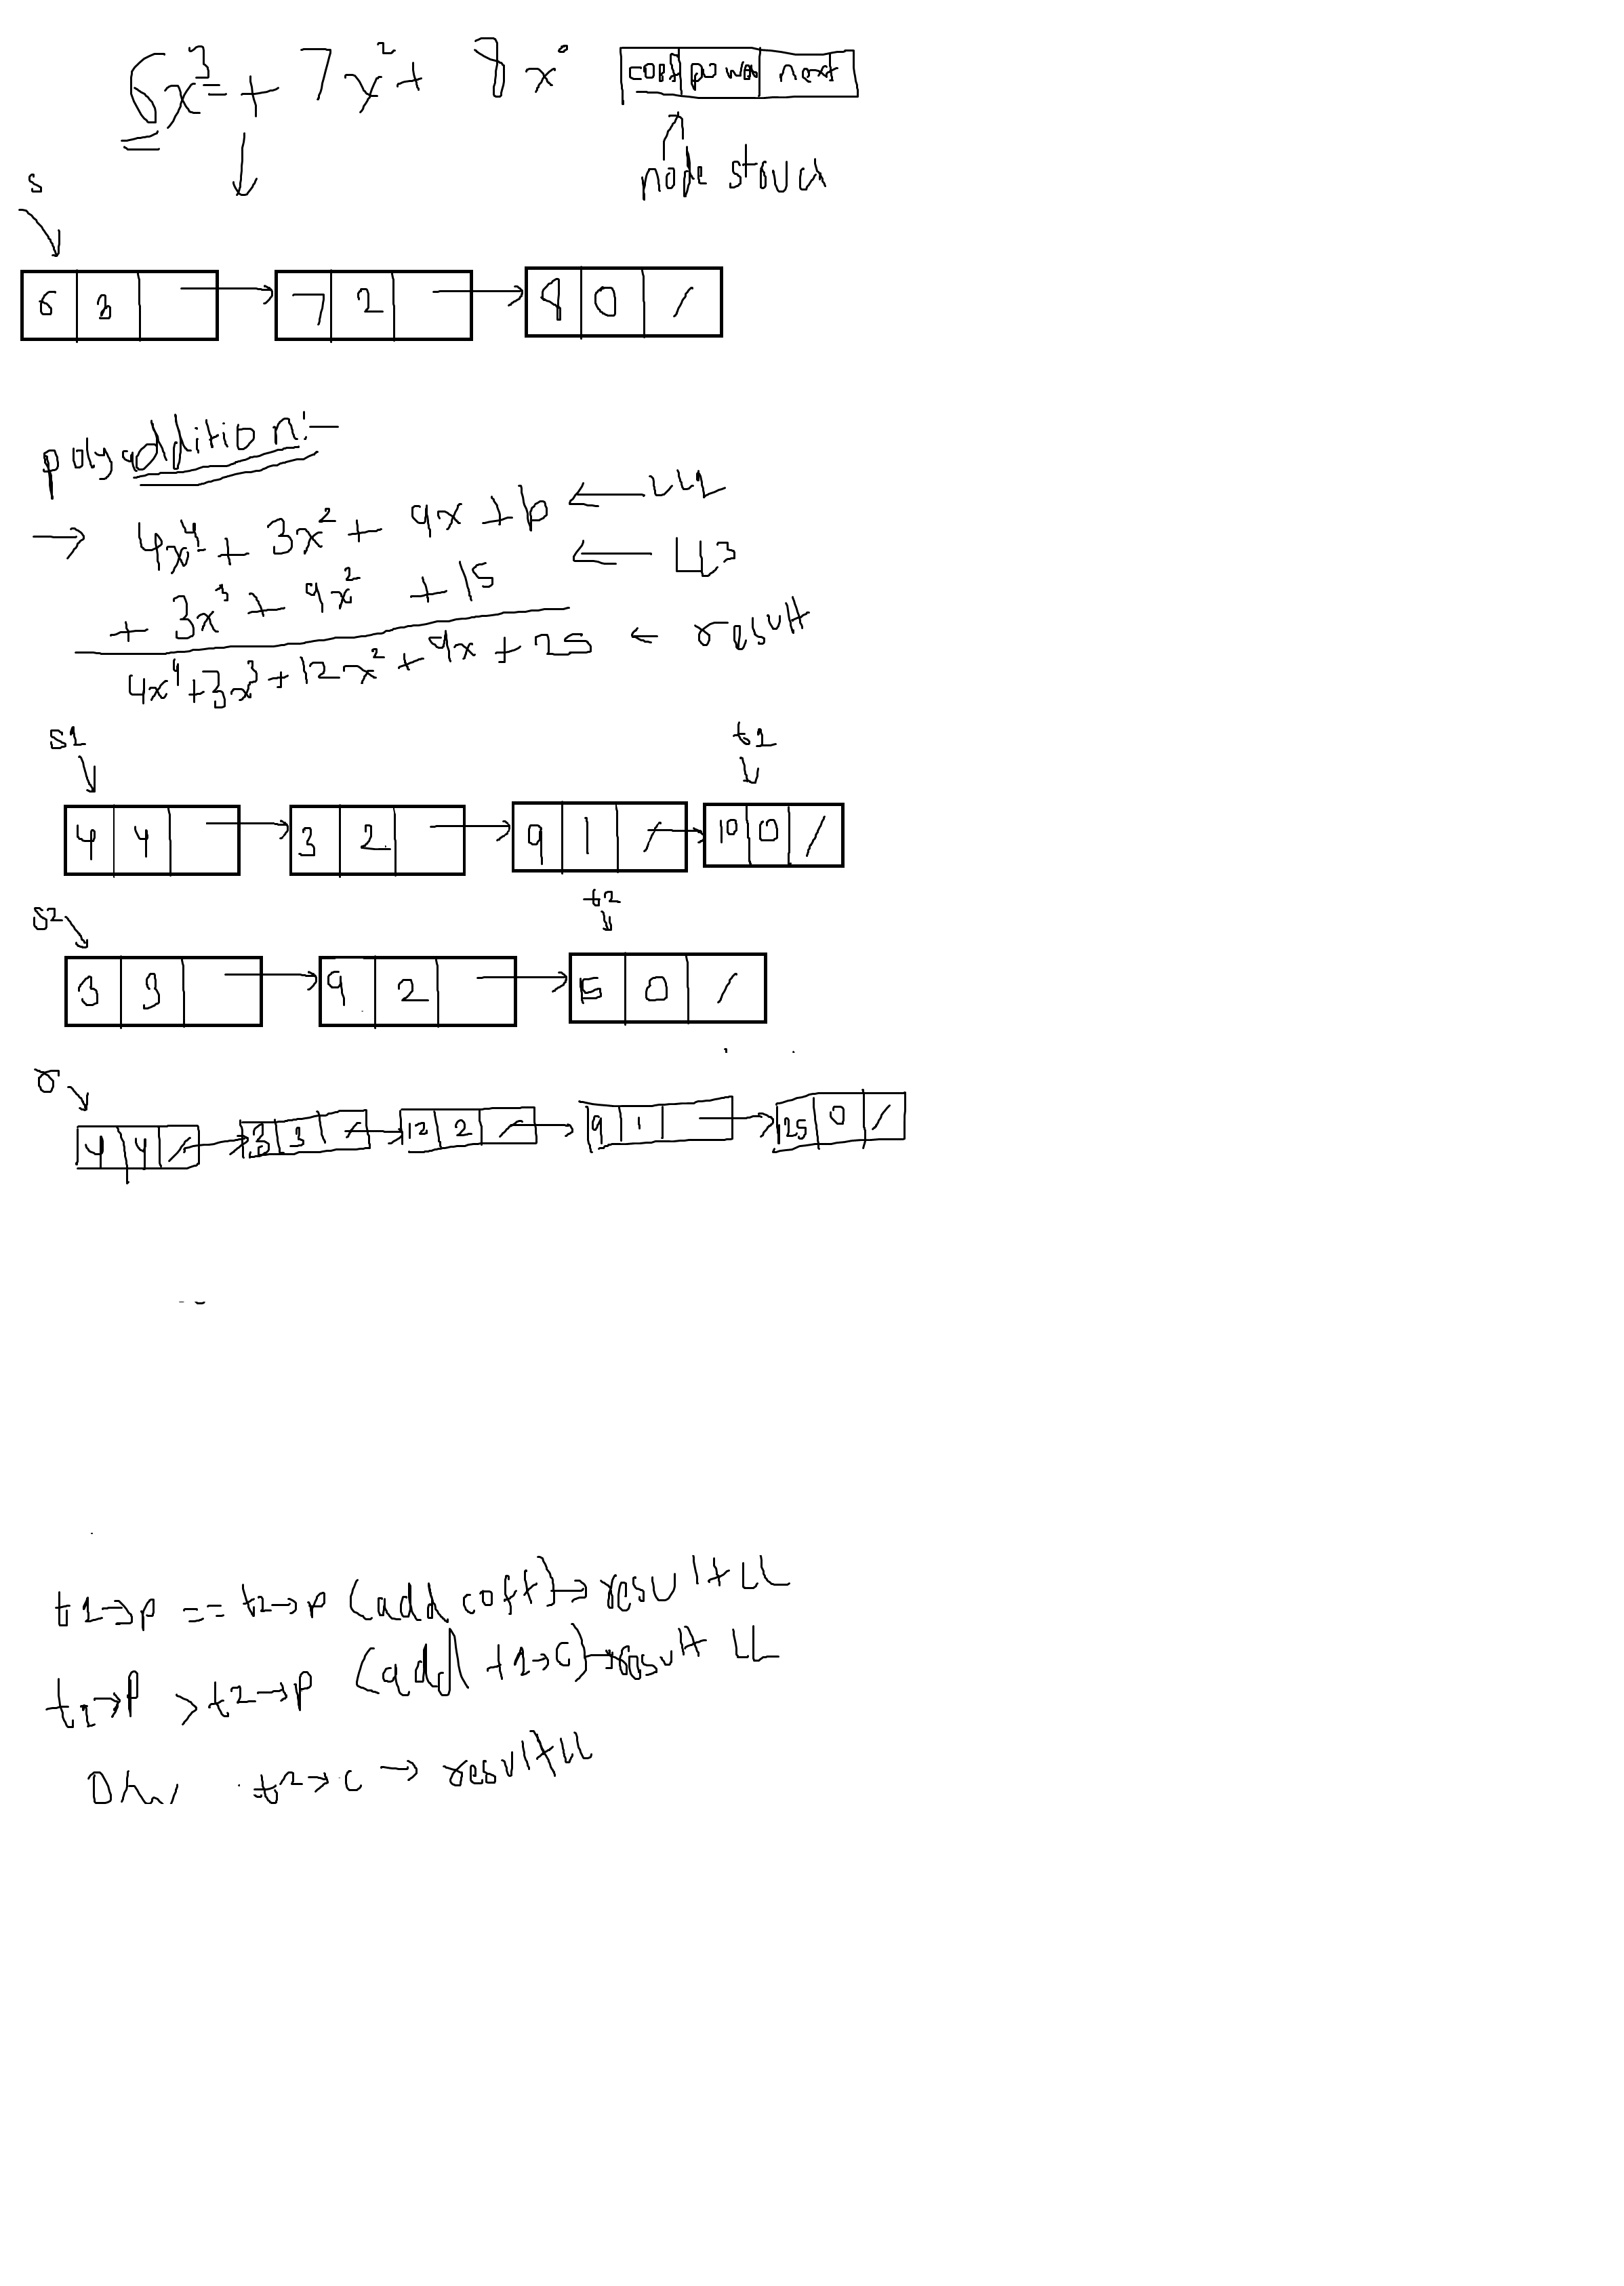 6x³ + 7x² + 8x⁰
coef power next
node
s
6 3
7 2
8 0 /
poly addition:-
→ 4x⁴ + 3x² + 9x + 10 ←
+ 3x³ + 9x² + 15 ←
4x⁴ + 3x³ + 12x² + 9x + 25 ← result
s1 t1
4 4
3 2
9 1 /
10 0 /
s2 t2
3 3
9 2
15 0 /
r
4 4 /
3 3 /
12 2 /
9 1
25 0 /
t1→p == t2→p (add coff) → result LL
t1→p > t2→p (add t1→c) → result LL
t2→c → result LL